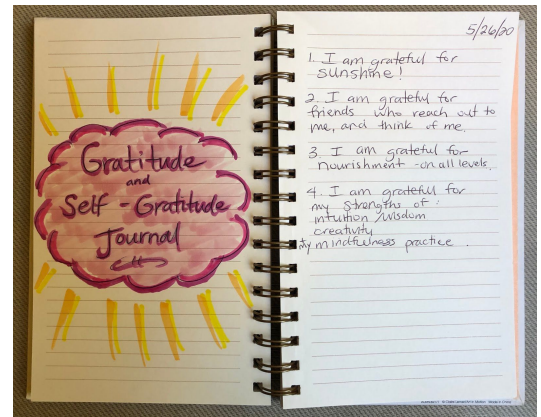 Gratitude
and
Self - Gratitude
Journal
5/26/20
1. I am grateful for
sunshine!
2. I am grateful for
friends who reach out to
me, and think of me.
3. I am grateful for
nourishment - on all levels.
4. I am grateful for
my strengths of :
intuition/wisdom
creativity
my mindfulness practice.